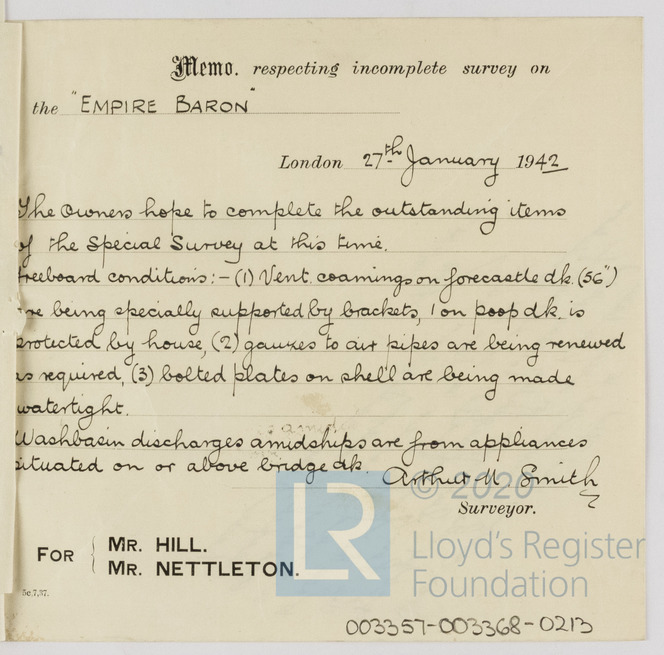 Memo. respecting incomplete survey on
the "EMPIRE BARON"
London 27th January 1942
The Owners hope to complete the outstanding items
of the Special Survey at this time.
freeboard conditions:- (1) Vent. coamings on forecastle dk. (36")
are being specially supported by brackets, 1 on poop dk. is
protected by house, (2) gauzes to air pipes are being renewed
as required, (3) bolted plates on shell are being made
watertight.
Washbasin discharges amidships are from appliances
situated on or above bridge dk.
Arthur Smith
Surveyor.
FOR { MR. HILL.
MR. NETTLETON.
5c,7,37.
© 2020
LR
Lloyd's Register
Foundation
003357-003368-0213